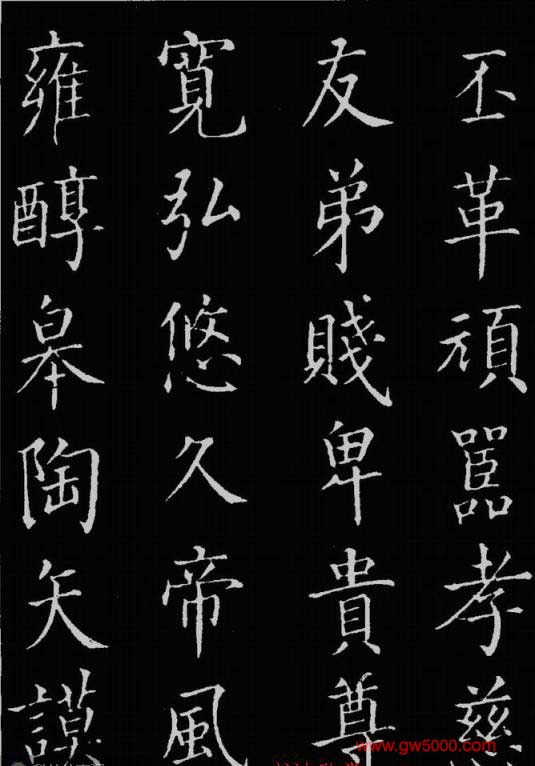 丕革頑嚚孝慈
友弟賤卑貴尊
寬弘悠久帝風
雍醇皋陶矢謨
www.gw5000.com